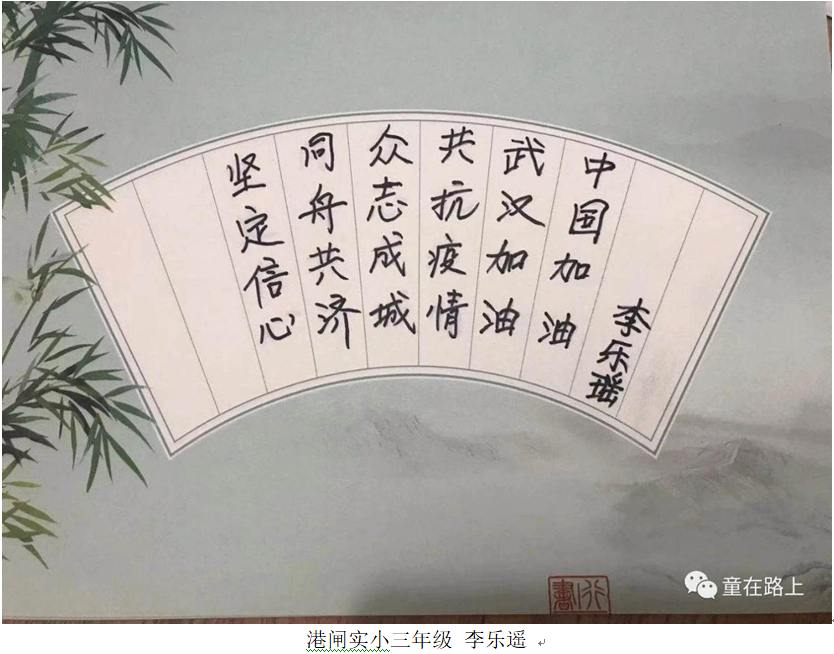 坚定信心
同舟共济
众志成城
共抗疫情
武汉加油
中国加油
李乐瑶
行書
童在路上
港闸实小三年级 李乐遥